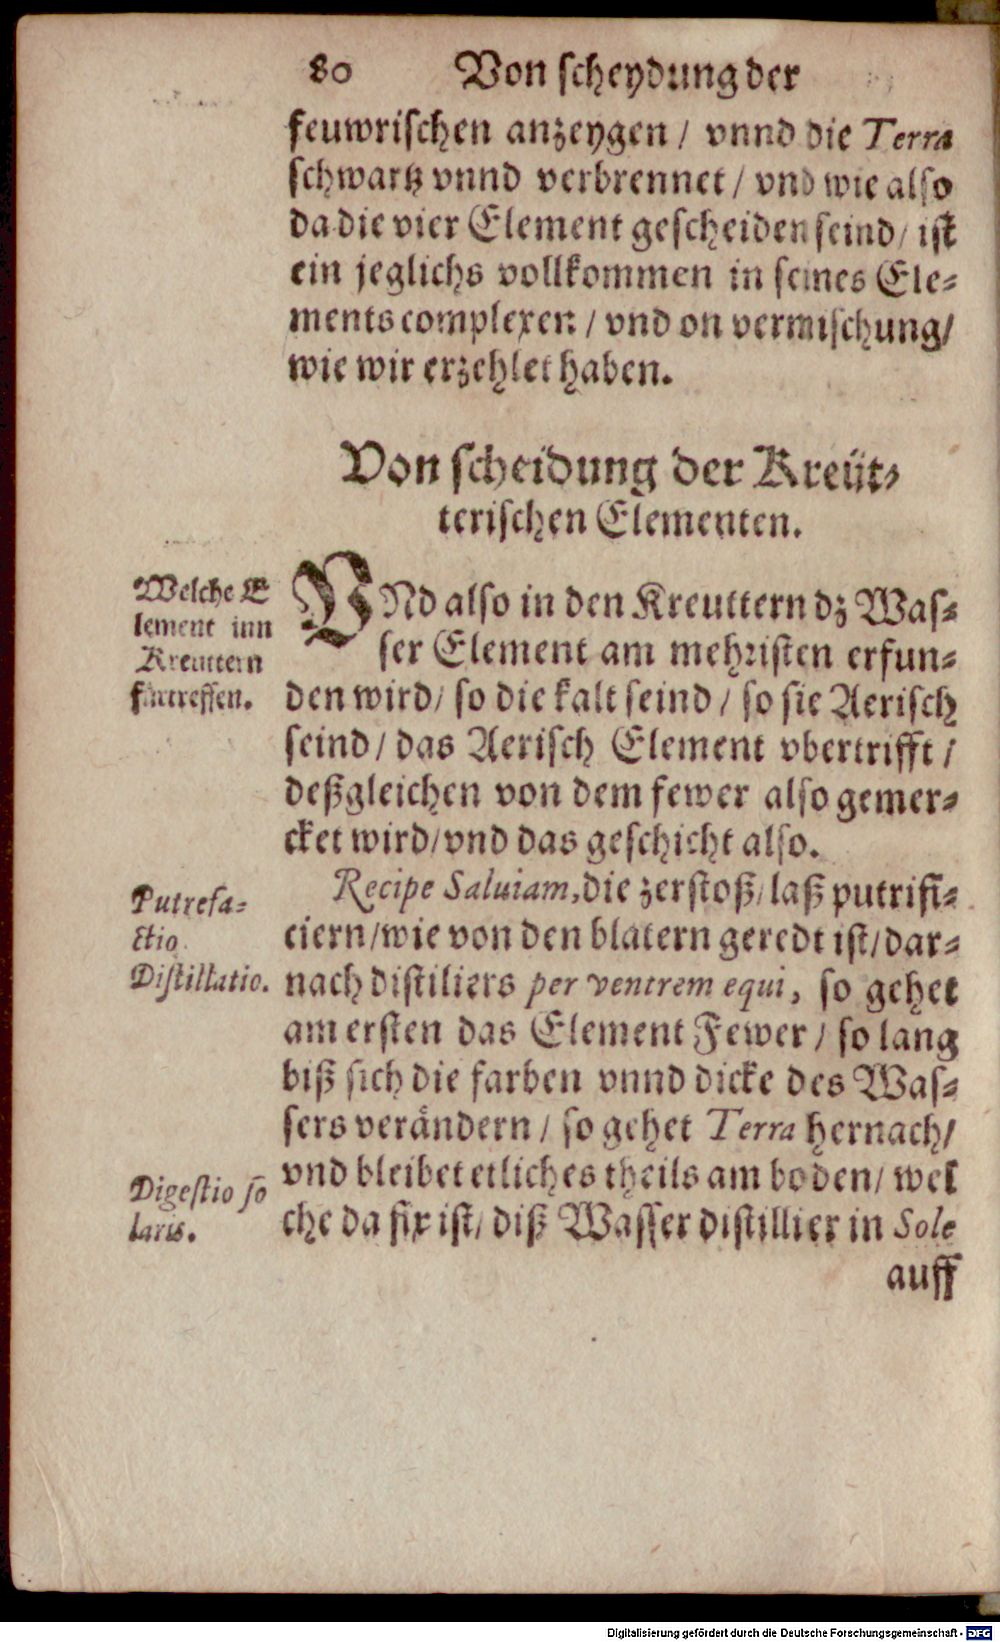 80 Von scheydung der
feuwrischen anzeygen / vnnd die Terra
schwartz vnnd verbrennet / vnd wie also
da die vier Element gescheiden seind / ist
ein jeglichs vollkommen in seines Ele⸗
ments complexen / vnd on vermischung /
wie wir erzehlet haben.
Von scheidung der Kreüt⸗
terischen Elementen.
Welche E
lement inn
Kreuttern
fürtreffen.
VNd also in den Kreuttern dz Was⸗
ser Element am mehristen erfun⸗
den wird / so die kalt seind / so sie Aerisch
seind / das Aerisch Element vbertrifft /
deßgleichen von dem fewer also gemer⸗
cket wird / vnd das geschicht also.
Putrefa⸗
ctio.
Distillatio.
Recipe Saluiam, die zerstoß / laß putrifi⸗
ciern / wie von den blatern geredt ist / dar⸗
nach distiliers per ventrem equi, so gehet
am ersten das Element Fewer / so lang
biß sich die farben vnnd dicke des Was⸗
sers verändern / so gehet Terra hernach /
Digestio so
laris.
vnd bleibet etliches theils am boden / wel
che da fix ist / diß Wasser distillier in Sole
auff
Digitalisierung gefördert durch die Deutsche Forschungsgemeinschaft - DFG